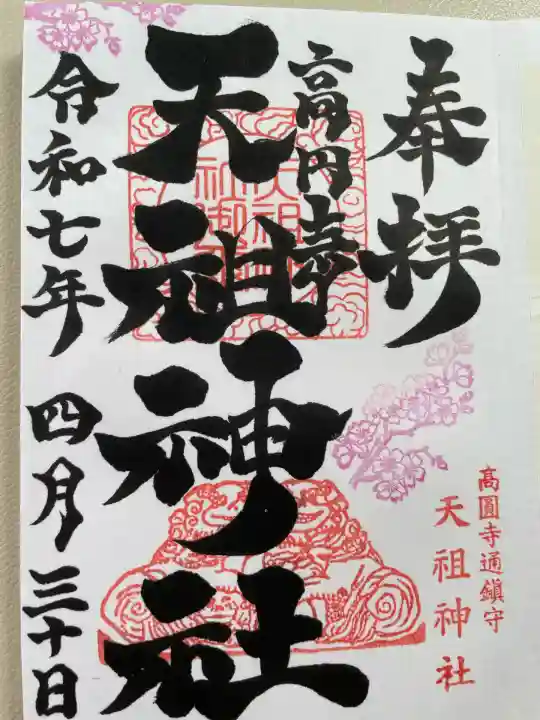 奉拝
高円寺
天祖神社
令和七年 四月三十日
高圓寺通鎮守
天祖神社